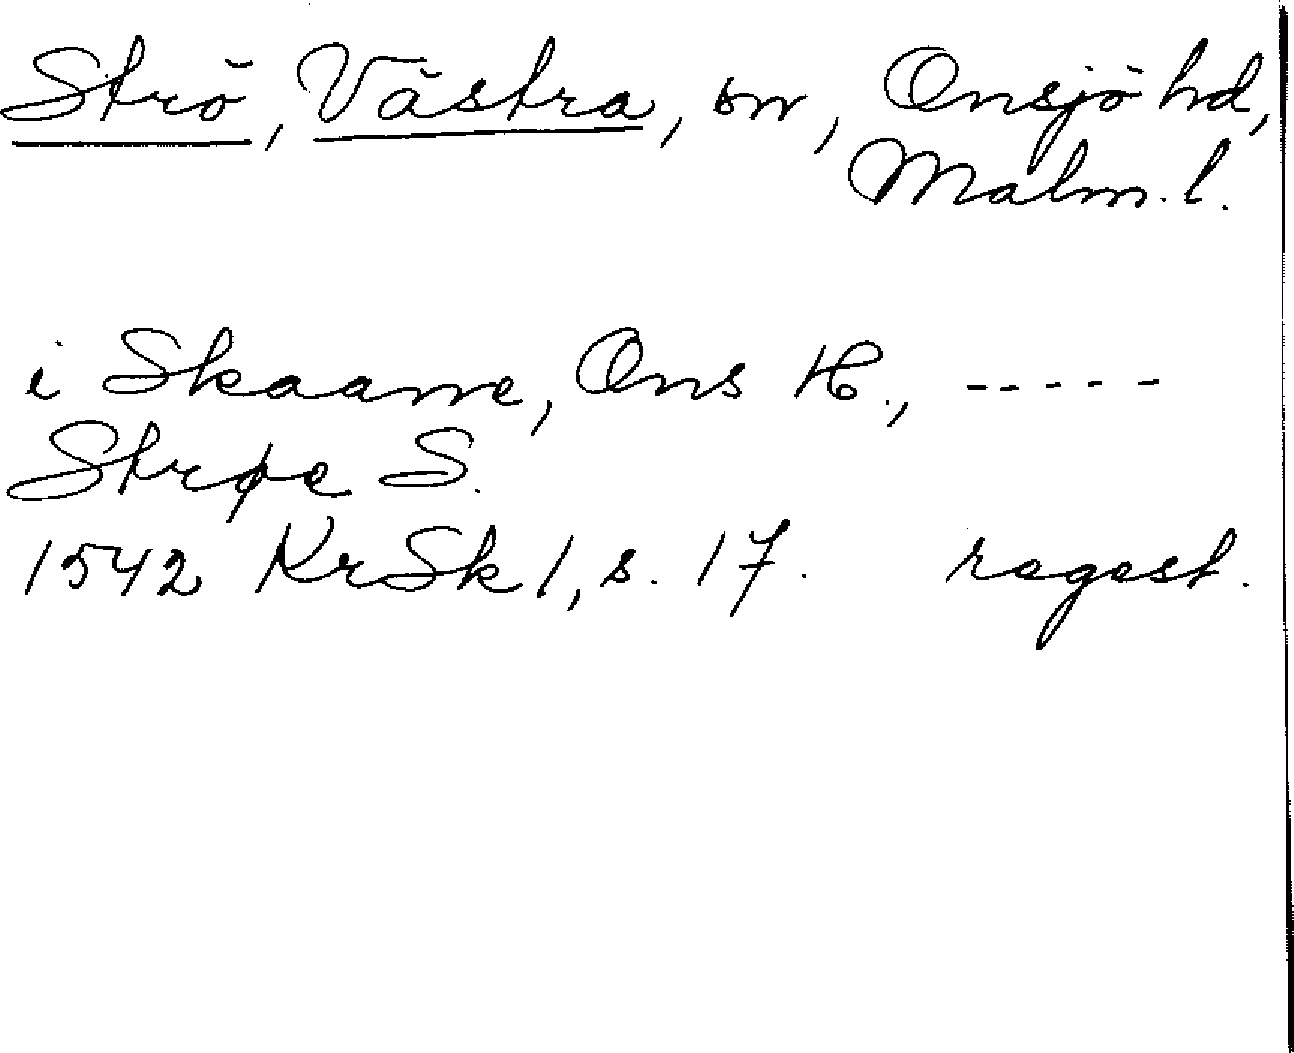 Strö, Västra, sn, Onsjö hd,
Malm. l.
i Skaane, Ons H., -----
Strøe S.
1542 KrSk 1, s. 17. regest.